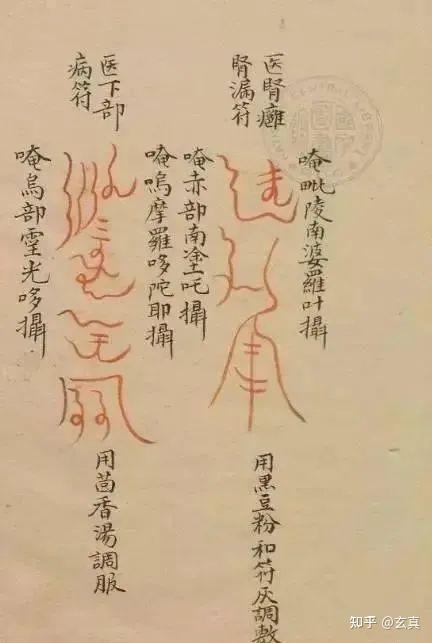 医腎癰
腎漏符
唵毗陵南婆羅叶攝
唵赤部南塗吒攝
用黑豆粉和符灰調敷
医下部
病符
唵嗚摩羅哆陀耶攝
唵烏部霊光哆攝
用茴香湯調服
知乎 @玄真